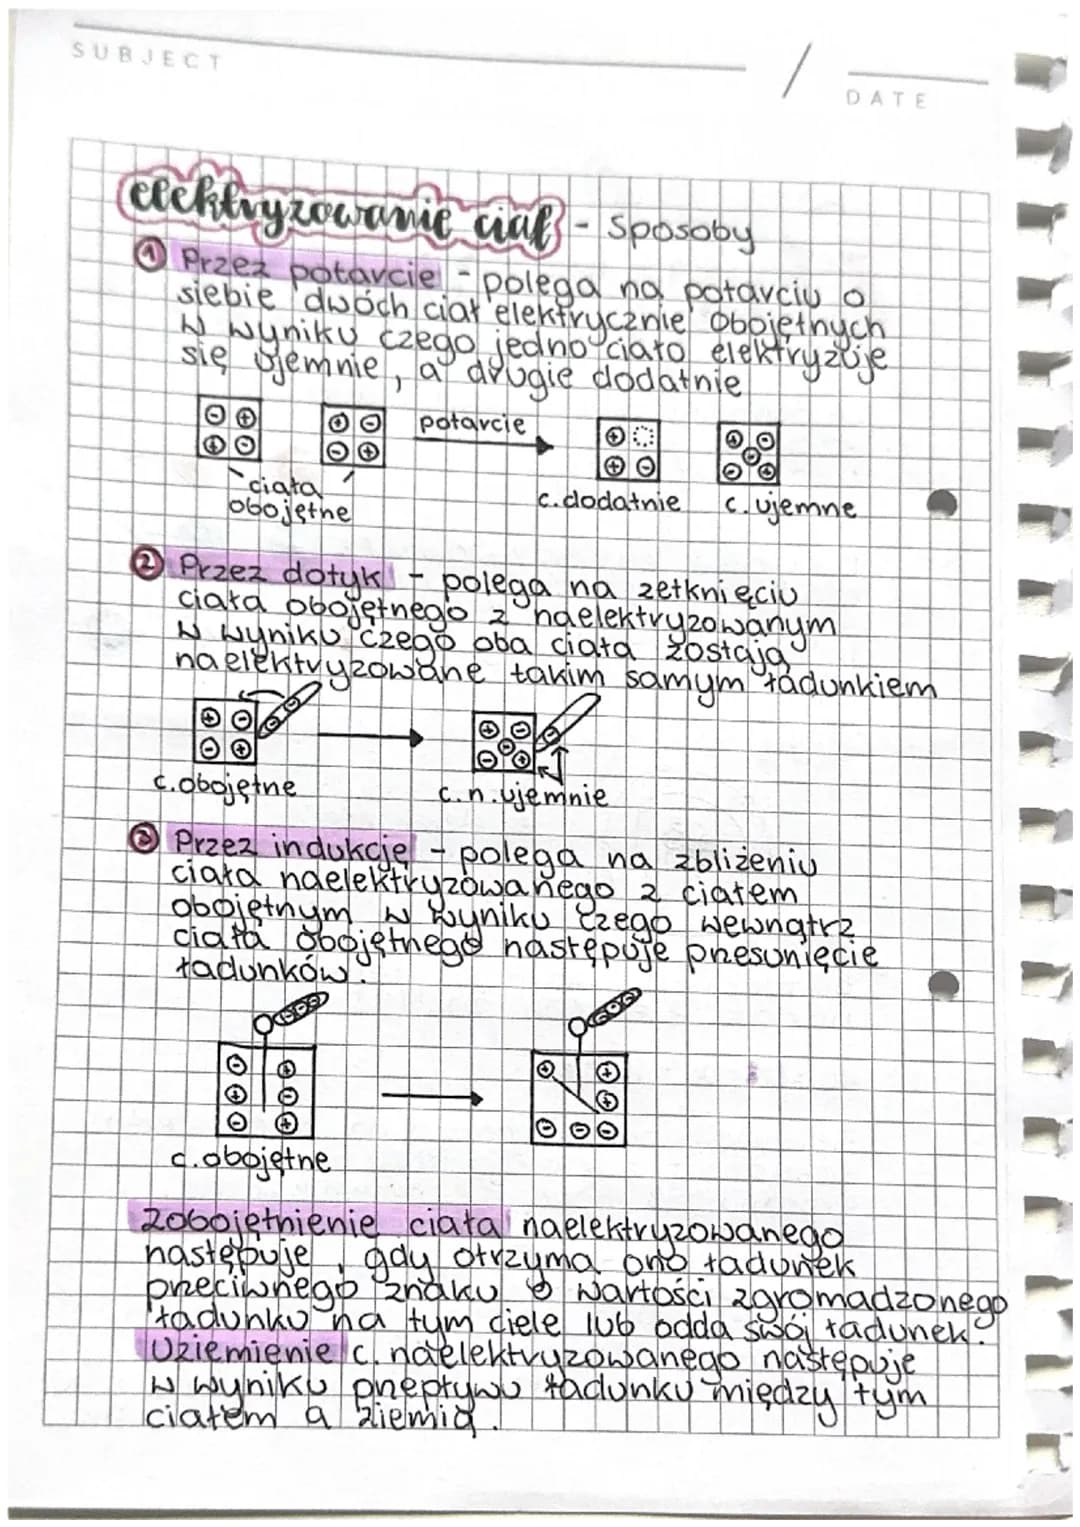 SUBJECT
DATE
elektryzowanie ciał - sposoby
1 Przez potarcie - polega na potarciu o
siebie dwóch ciał elektrycznie obojętnych
w wyniku czego jedno ciało elektryzuje
się ujemnie, a drugie dodatnie
potarcie
ciała
obojętne
c.dodatnie
c.ujemne
2 Przez dotyk - polega na zetknięciu
ciała obojętnego z naelektryzowanym
w wyniku czego oba ciała zostają
naelektryzowane takim samym ładunkiem
c.obojętne
c.n.ujemnie
3 Przez indukcję - polega na zbliżeniu
ciała naelektryzowanego z ciałem
obojętnym w wyniku czego wewnątrz
ciała obojętnego następuje przesunięcie
ładunków.
c.obojętne
Zobojętnienie ciała naelektryzowanego
następuje, gdy otrzyma ono ładunek
przeciwnego znaku o wartości zgromadzonego
ładunku na tym ciele lub odda swój ładunek.
Uziemienie c. naelektryzowanego następuje
w wyniku przepływu ładunku między tym
ciałem a ziemią.